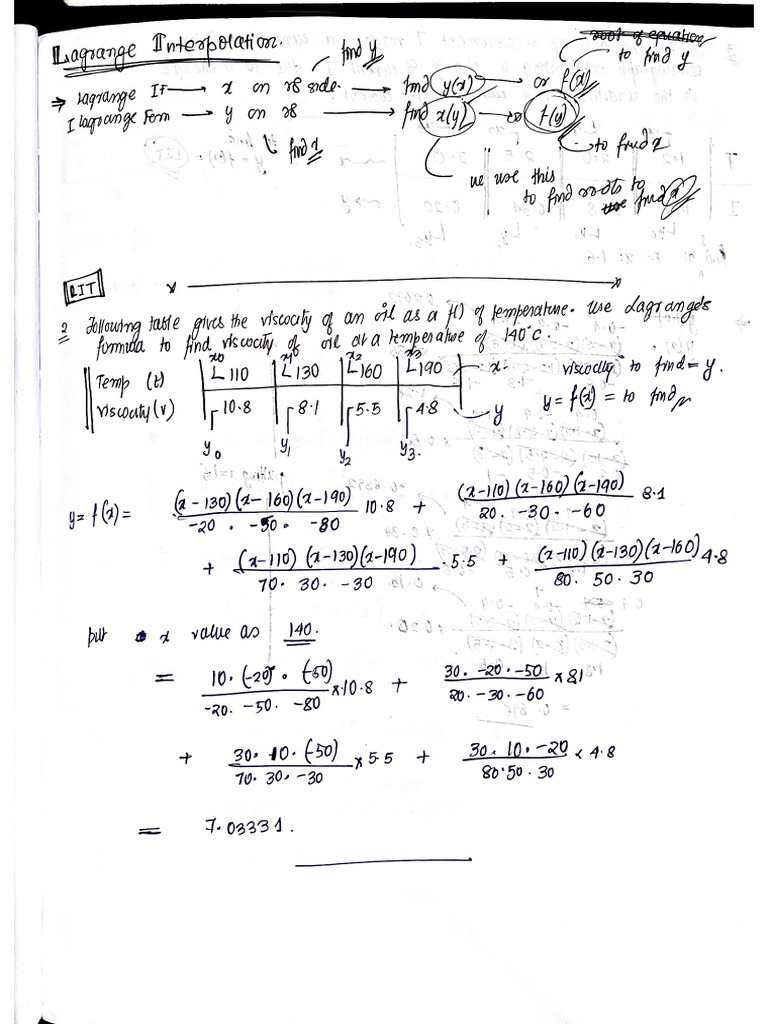 Lagrange Interpolation.
find y
root of equation
to find y
⇒ Lagrange IF → x on RS side → find y(x) → or f(x)
I lagrange Form → y on RS → find x(y) → or f(y)
find x
to find x
we use this
to find roots to find x
RIT
2 Following table gives the viscocity of an oil as a f() of temperature. use Lagrange's
formula to find viscocity of oil at a temperature of 140°c.
x0 x1 x2 x3
Temp (t) 110 130 160 190 x: viscocity to find = y.
viscocity (v) 10.8 8.1 5.5 4.8 y y = f(x) = to find
y0 y1 y2 y3.
y = f(x) = (x-130)(x-160)(x-190) / -20 . -50 . -80 10.8 + (x-110)(x-160)(x-190) / 20 . -30 . -60 8.1
+ (x-110)(x-130)(x-190) / 70. 30. -30 . 5.5 + (x-110)(x-130)(x-160) / 80. 50. 30 4.8
put x value as 140.
= 10. (-20) . (-50) / -20. -50. -80 × 10.8 + 30. -20. -50 / 20. -30. -60 × 81
+ 30. 10. (-50) / 70. 30. -30 × 5.5 + 30. 10. -20 / 80.50.30 × 4.8
= 7.03331.